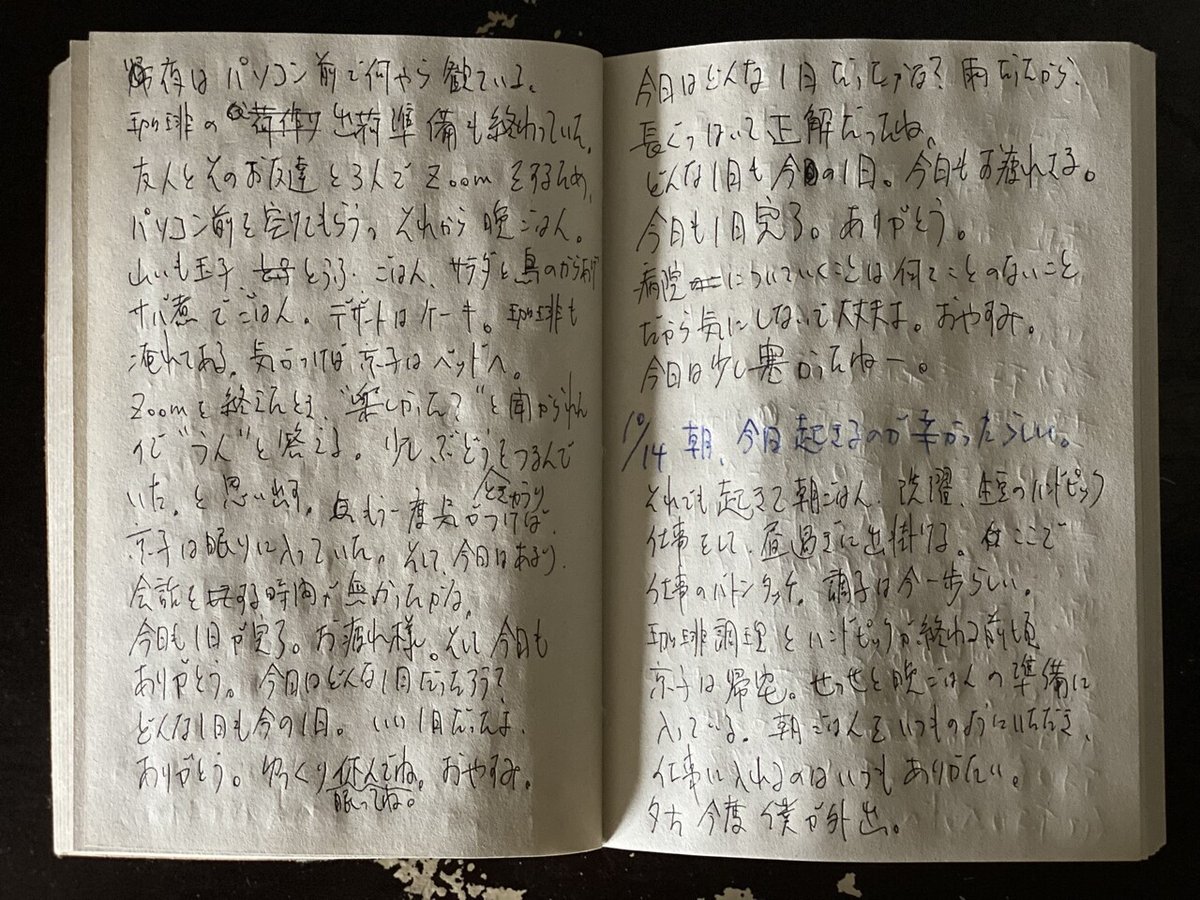 昨夜はパソコン前で何やら観ている。
珈琲の 出荷準備も終わっていた。
友人とそのお友達と3人でZoomをするため、
パソコン前を空けてもらう。それから晩ごはん。
山いも玉子、とうふ、ごはん、サラダと鳥のからあげ
サバ煮でごはん。デザートはケーキ。珈琲も
淹れてある。気がつけば京子はベッドへ。
Zoomを終えたとき、"楽しかった?"と聞かれ
"うん"と答える。少しぶどうをつまんで
いた。と思い出す。もう一度気がつけば、
京子は眠りに入っていた。そして、今日はあまり、
会話をする時間が無かったかな。
今日も1日が完了。お疲れ様。そして今日も
ありがとう。今日はどんな1日だったろう?
どんな1日も今の1日。いい1日だったよ。
ありがとう。ゆっくり休んでね。おやすみ。
眠ってね。
今日はどんな1日だったかな?雨だったから、
長ぐつはいて正解だったね。
どんな1日も今の1日。今日もお疲れさま。
今日も1日完了。ありがとう。
病院についていくことは何てことのないこと
だから気にしないで大丈夫よ。おやすみ。
今日は少し寒かったねー。
10/14 朝、今日起きるのが辛かったらしい。
それでも起きて朝ごはん、洗濯、生豆のハンドピック
仕事をして、昼過ぎに出掛ける。ここで
仕事のバトンタッチ。調子は今一歩らしい。
珈琲調理とハンドピックが終わる前頃
京子は帰宅。せっせと晩ごはんの準備に
入っている。朝ごはんをいつものようにいただき、
仕事に入れるのはいつもありがたい。
夕方 今度僕が外出。